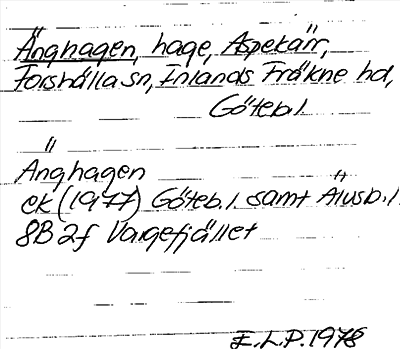 Änghagen, hage, Aspekärr,
Forshälla sn, Inlands Fräkne hd,
Göteb.l.
Änghagen
ek (1977) Göteb.l. samt Älvsb.l.
8B 2f Vargefjället
E.L.P. 1978